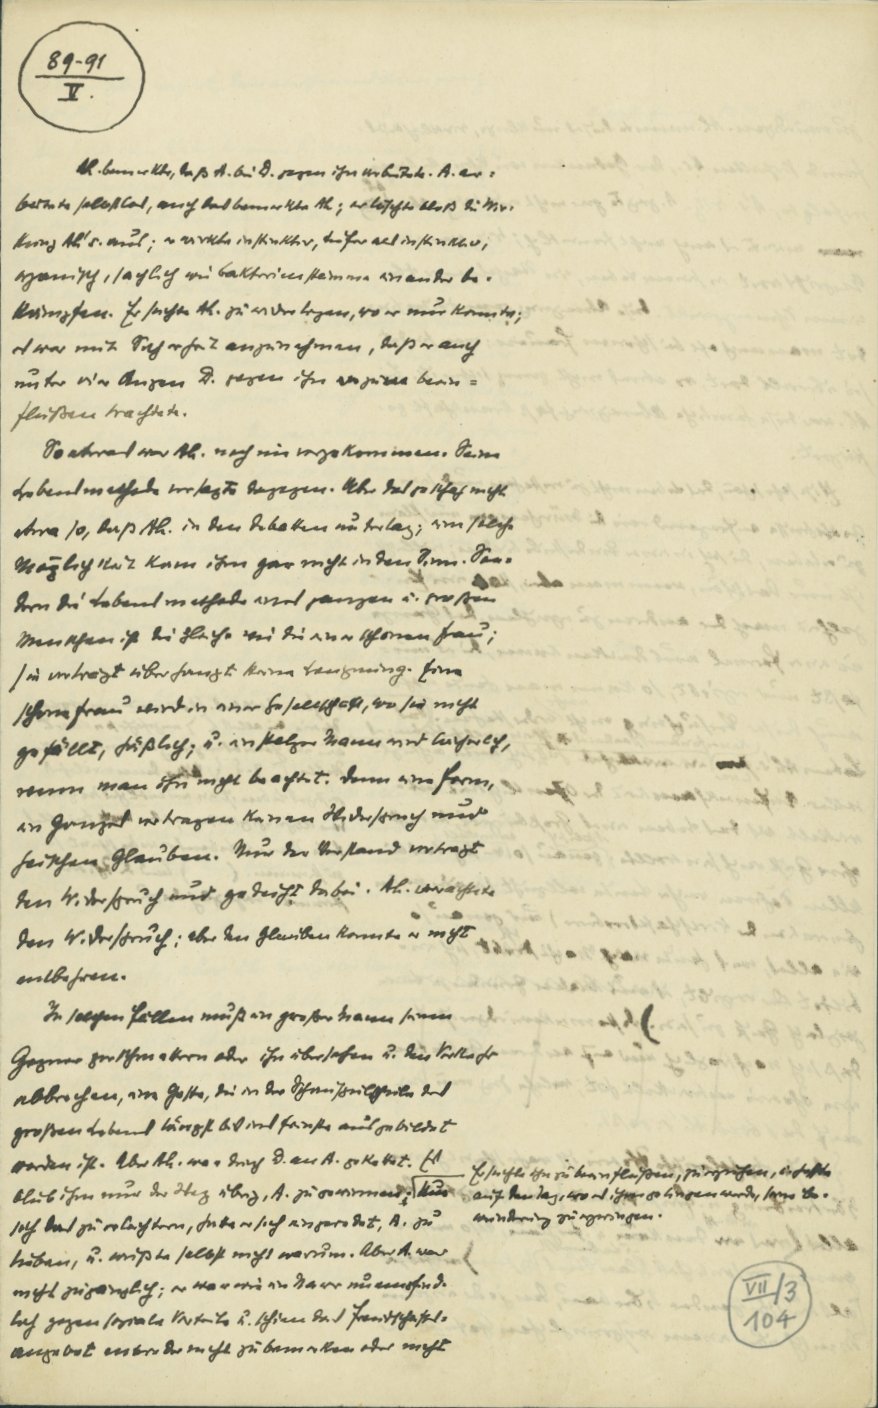 89-91
V.
Ah. bemerkte, daß A. bei D. gegen ihn arbeitete. A. ar-
beitete selbstlos, auch das bemerkte Ah; er löschte bloß die Wir-
kung Ah's. aus; er wirkte instinktiv, tiefer als instinktiv,
organisch, sachlich wie Bakterienstämme einander be-
kämpfen. Er suchte Ah. zu widerlegen, wo er nur konnte;
es war mit Sicherheit anzunehmen, daß er auch
unter vier Augen D. gegen ihn beein=
flußen trachtete.
So etwas war Ah. noch nie vorgekommen. Seine
Lebensmethode versagte dagegen. Aber das geschah nicht
etwa so, daß Ah. in den Debatten unterlag; eine solche
Möglichkeit kam ihm gar nicht in den Sinn. Son-
dern die Lebensmethode eines ganzen u. großen
Menschen ist die gleiche wie die einer schönen Frau;
sie verträgt überhaupt keine Leugnung. Eine
schöne Frau wird in einer Gesellschaft, wo sie nicht
gefällt, häßlich; u. ein stolzer Mann wird lächerlich,
wenn man ihn nicht beachtet. Denn eine Form,
ein Ganzes vertragen keinen Widerspruch und
heischen Glauben. Nur der Verstand verträgt
den Widerspruch und gedeiht dabei. Ah. verachtete
den Widerspruch; aber den Glauben konnte er nicht
entbehren.
In solchen Fällen muß ein großer Mann seinen
Gegner zerschmettern oder ihn übersehen u. den Verkehr
abbrechen, eine Geste, die in der des
großen Lebens längst bis ins feinste ausgebildet
worden ist. Aber Ah. war durch D. an A. gekettet. Es
blieb ihm nur der Weg übrig, A. zu gewinnen; Um
sich das zu erleichtern, hatte er sich eingeredet, A. zu
lieben, u. wußte selbst nicht warum. Aber A. war
nicht zugänglich; er war wie ein Narr unempfind-
lich gegen soziale Vorteile u. schien das Freundschafts-
angebot entweder nicht zu bemerken oder nicht
Er suchte ihn zu beeinflußen, zu
auf den Tag, wo es ihm gelingen werde, seine Be-
wunderung zu erzwingen.
VII/3
104